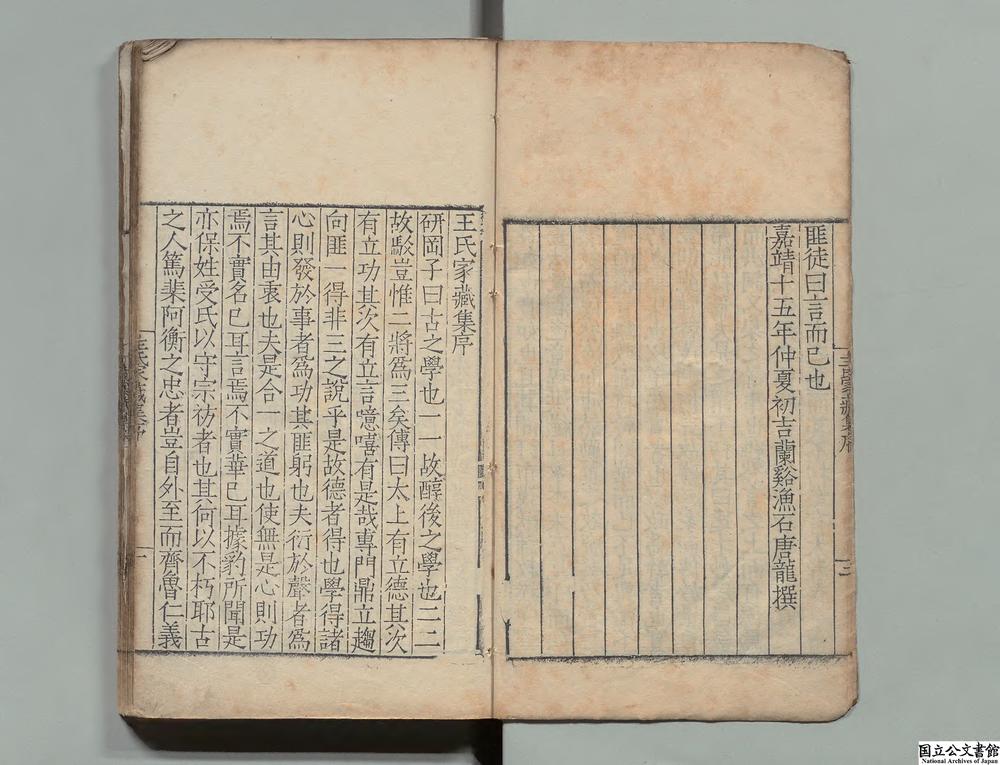 匪徒曰言而已也
嘉靖十五年仲夏初吉蘭谿漁石唐龍撰
王氏家藏集序
三
王氏家藏集序
研岡子曰古之學也一一故醇後之學也二二
故駁豈惟二將爲三矣傳曰太上有立德其次
有立功其次有立言噫嘻有是哉專門鼎立趨
向匪一得非三之說乎是故德者得也學得諸
心則發於事者爲功其匪躬也夫衍於聲者爲
言其由衷也夫是合一之道也使無是心則功
焉不實名已耳言焉不實華已耳據豹所聞是
亦保姓受氏以守宗祊者也其何以不朽耶古
之人篤棐阿衡之忠者豈自外至而齊魯仁義
王氏家藏集序
一
国立公文書館
National Archives of Japan